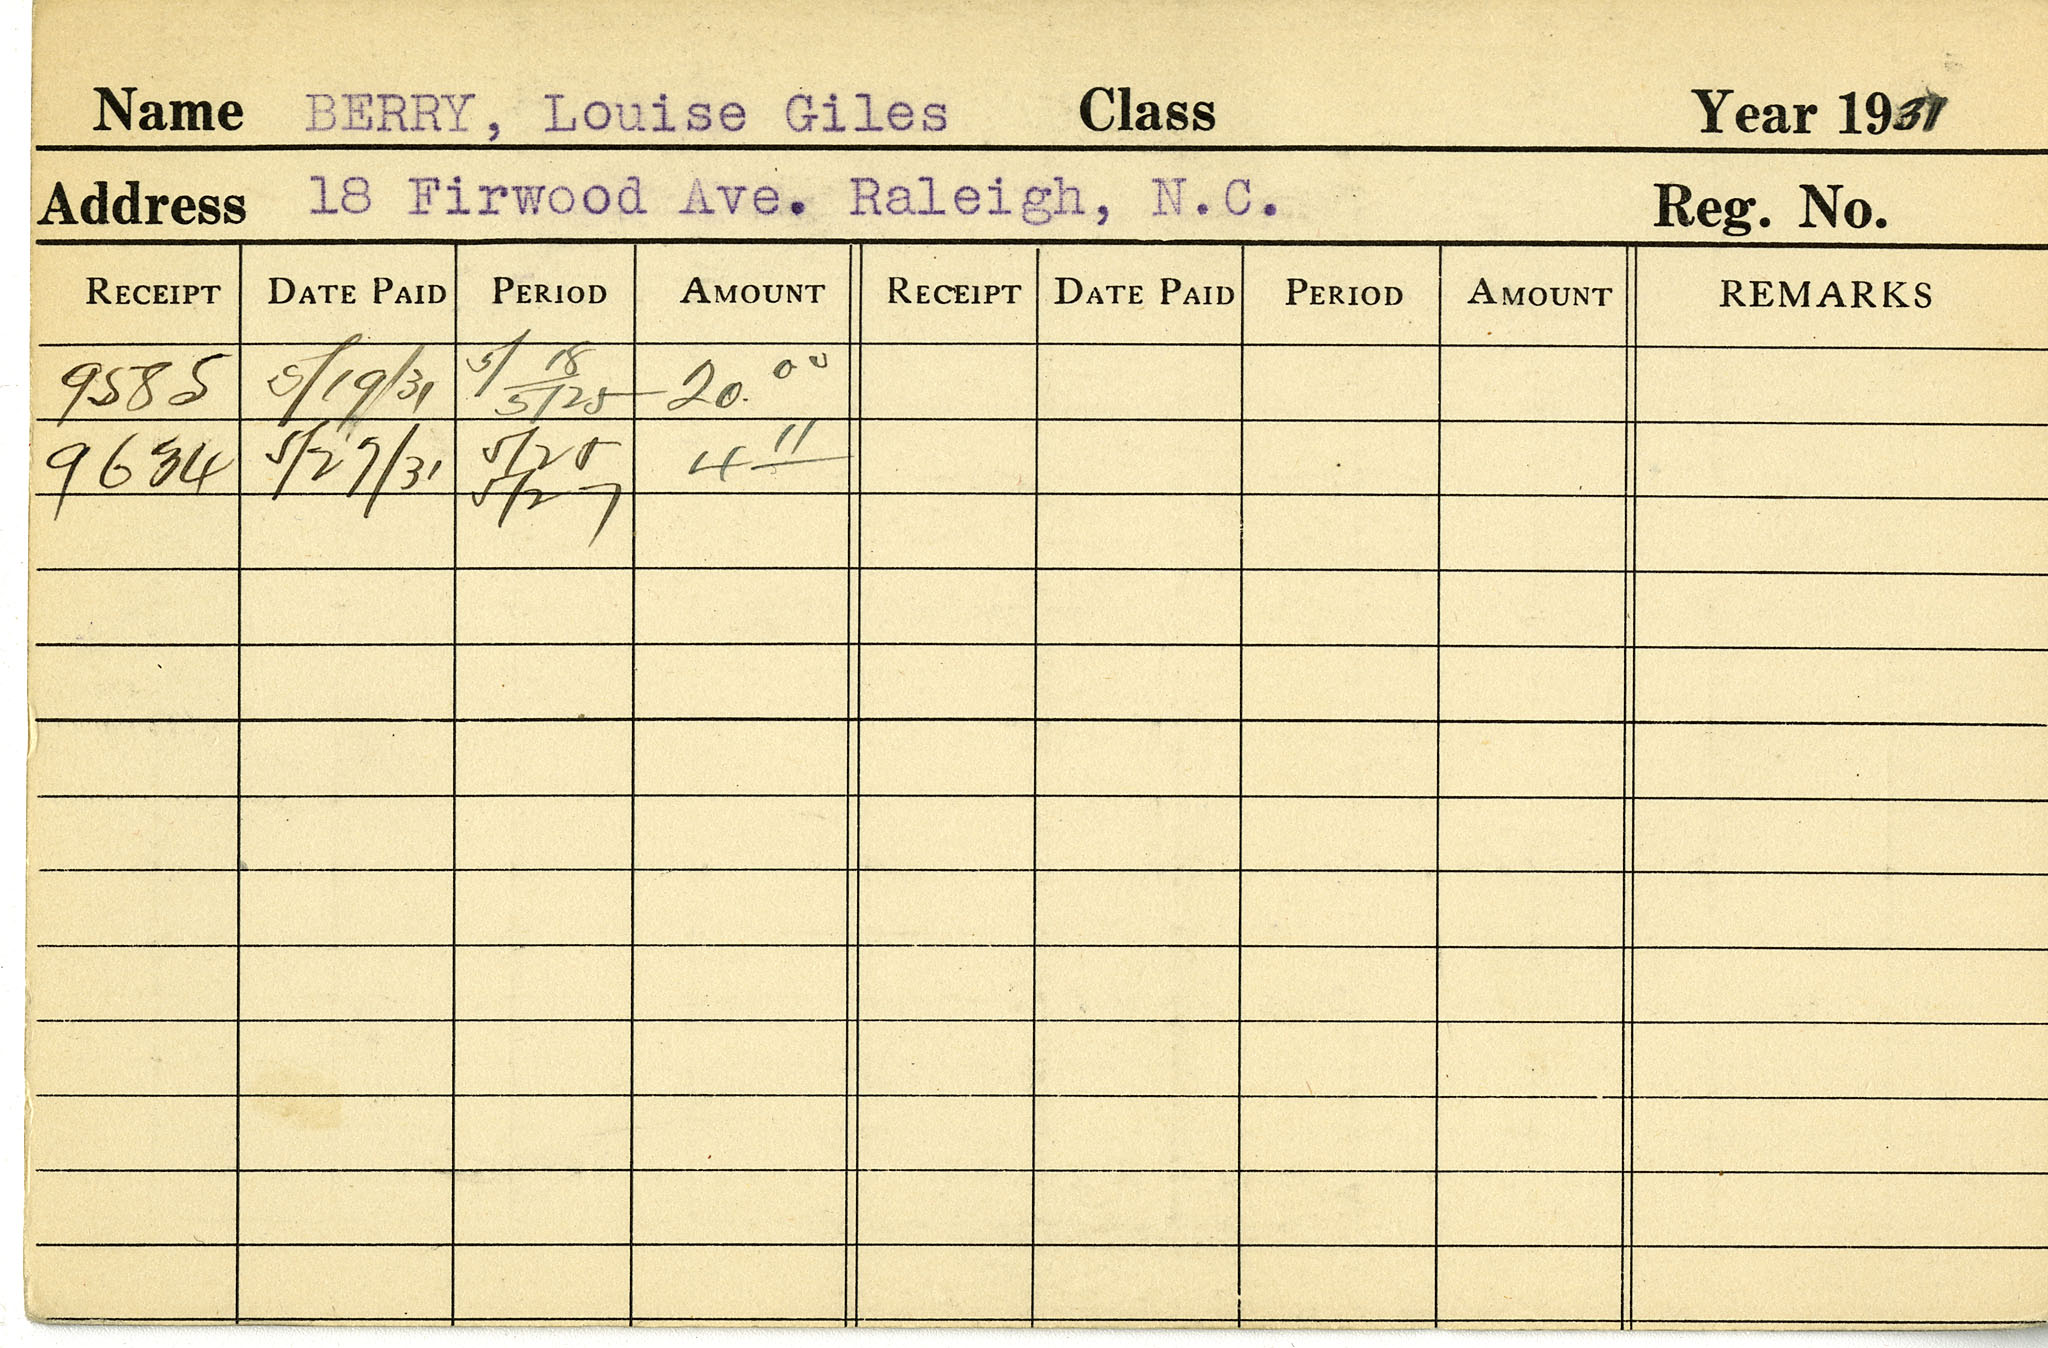 Name BERRY, Louise Giles Class Year 1931
Address 18 Firwood Ave. Raleigh, N.C. Reg. No.
RECEIPT DATE PAID PERIOD AMOUNT RECEIPT DATE PAID PERIOD AMOUNT REMARKS
9585 5/19/31 5/18 5/25 20.00
9634 5/27/31 5/25 4 11
5/27